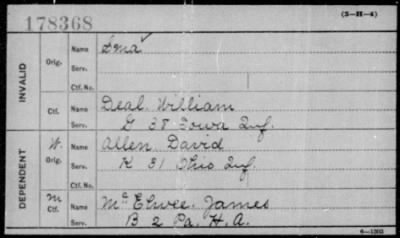 178368
(3-H-4)
INVALID
Orig. Name Smá
Serv.
Ctf. No.
Ctf. Name Deal William
Serv. G 38 Iowa Inf.
DEPENDENT
W. Orig. Name Allen David
Serv. K 31 Ohio Inf.
M Ctf. Name McElwee James
Serv. B 2 Pa. H. A.
6-1303